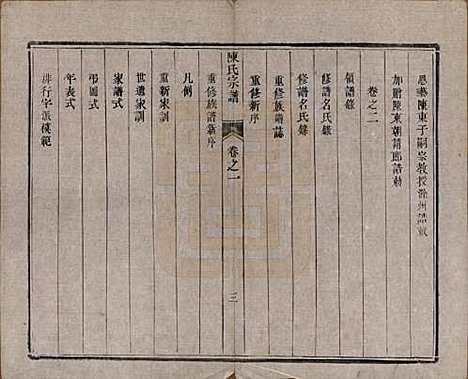 恩榮陳東子嗣宗教授滁州誥敕
加贈陳東朝請郎誥勅
卷之二
領譜錄
修譜名氏錄
修譜名氏錄
重修族譜誌
重修新序
陳氏宗譜
卷之一
三
重修族譜新序
凡例
重新家訓
世遺家訓
家譜式
弔圖式
年表式
排行字派模範